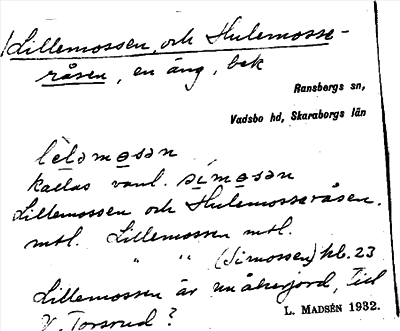 Lillemossen, och Hulemosse-
råsen, en äng, bek
Ransbergs sn,
Vadsbo hd, Skaraborgs län
kallas vanl.
Lillemossen och Hulemosseråsen.
mtl. Lillemossen mtl.
" " (Simossen) hl. 23
Lillemossen är en åkerjord, till
L. MADSÉN 1932.
V. Torsrud?